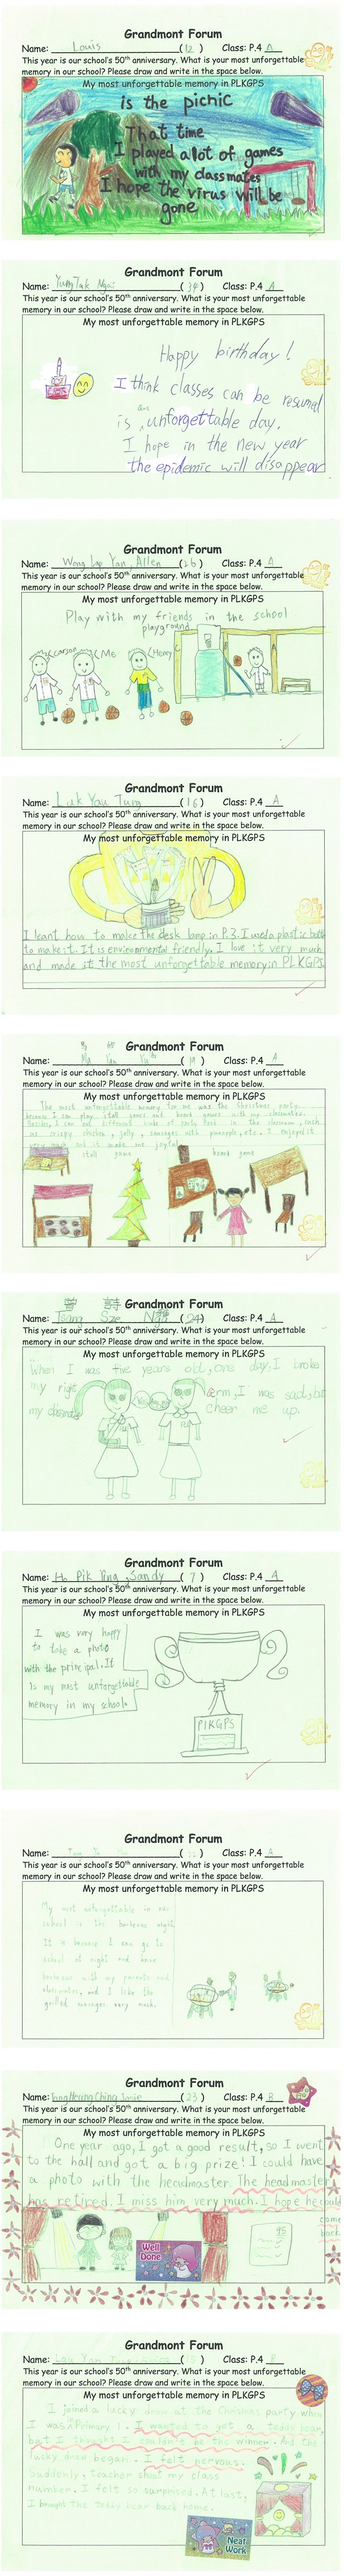 Grandmont Forum
Name: Louis (12) Class: P.4 A
This year is our school's 50th anniversary. What is your most unforgettable
memory in our school? Please draw and write in the space below.
My most unforgettable memory in PLKGPS
is the picnic
That time
I played a lot of games
with my classmates
I hope the virus will be
gone
Grandmont Forum
Name: Yung Tak Ngai (34) Class: P.4 A
This year is our school's 50th anniversary. What is your most unforgettable
memory in our school? Please draw and write in the space below.
My most unforgettable memory in PLKGPS
Happy birthday!
I think classes can be resumed
is an unforgettable day.
I hope in the new year
the epidemic will disappear
Grandmont Forum
Name: Wong Lap Yan, Allen (26) Class: P.4 A
This year is our school's 50th anniversary. What is your most unforgettable
memory in our school? Please draw and write in the space below.
My most unforgettable memory in PLKGPS
Play with my friends in the school
playground
Carson Me Henry
Grandmont Forum
Name: Luk Yau Tung (16) Class: P.4 A
This year is our school's 50th anniversary. What is your most unforgettable
memory in our school? Please draw and write in the space below.
My most unforgettable memory in PLKGPS
I leant how to make the desk lamp in P.3. I used a plastic bottle
to make it. It is environmental friendly. I love it very much
and made it the most unforgettable memory in PLKGPS.
Grandmont Forum
Name: Ma Yan (19) Class: P.4 A
This year is our school's 50th anniversary. What is your most unforgettable
memory in our school? Please draw and write in the space below.
My most unforgettable memory in PLKGPS
The most unforgettable memory for me was the Christmas party
because I can play stall games and board games with my classmates.
Besides, I can eat different kinds of party food in the classroom, such
as crispy chicken, jelly, sausages with pineapple, etc. I enjoyed it
very much and it made me joyful.
stall game board game
曾 詩
Grandmont Forum
Name: Tsang Sze Nga (24) Class: P.4 A
This year is our school's 50th anniversary. What is your most unforgettable
memory in our school? Please draw and write in the space below.
My most unforgettable memory in PLKGPS
When I was five years old, one day, I broke
my right arm, I was sad, but
my classmate cheer me up.
Grandmont Forum
Name: Ho Pik Ying, Sandy (7) Class: P.4 A
This year is our school's 50th anniversary. What is your most unforgettable
memory in our school? Please draw and write in the space below.
My most unforgettable memory in PLKGPS
I was very happy
to take a photo
with the principal. It
is my most unforgettable
memory in my school.
PLKGPS
Grandmont Forum
Name: (22) Class: P.4 A
This year is our school's 50th anniversary. What is your most unforgettable
memory in our school? Please draw and write in the space below.
My most unforgettable memory in PLKGPS
My most unforgettable in our
school is the barbecue night.
It is because I can go to
school at night and have
barbecue with my parents and
classmates, and I like the
grilled sausages very much.
Grandmont Forum
Name: Yong Heung Ching Josie (23) Class: P.4 B
This year is our school's 50th anniversary. What is your most unforgettable
memory in our school? Please draw and write in the space below.
My most unforgettable memory in PLKGPS
One year ago, I got a good result, so I went
to the hall and got a big prize! I could have
a photo with the headmaster. The headmaster
has retired. I miss him very much. I hope he could
come
back
95
Well
Done
Grandmont Forum
Name: Lau Yan (15) Class: P.4 B
This year is our school's 50th anniversary. What is your most unforgettable
memory in our school? Please draw and write in the space below.
My most unforgettable memory in PLKGPS
I joined a lucky draw at the Christmas party when
I was in Primary 1. I wanted to get a teddy bear,
but I thought I couldn't be the winner. And the
lucky draw began. I felt nervous.
Suddenly, teacher shout my class
number. I felt so surprised. At last,
I brought the teddy bear back home.
Neat
Work